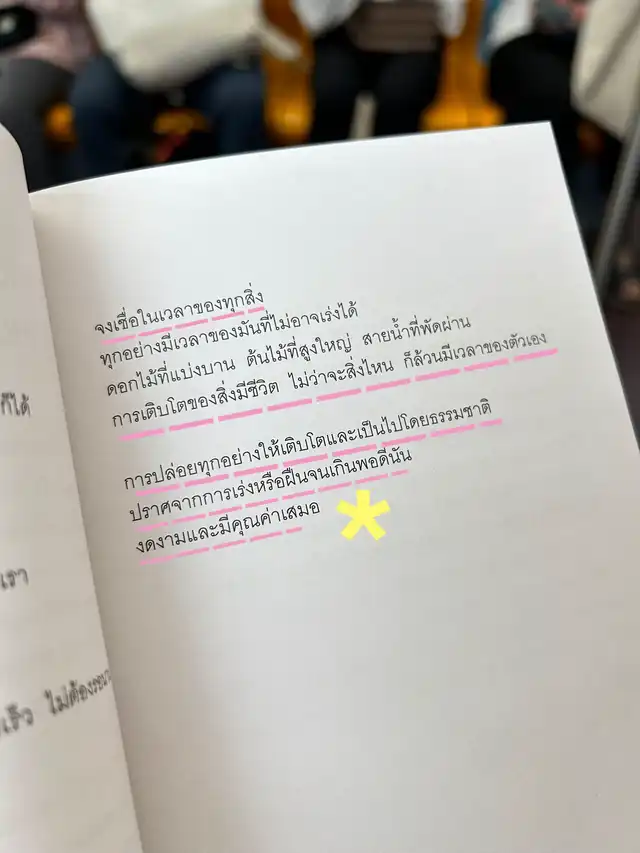 จงเชื่อในเวลาของทุกสิ่ง
ทุกอย่างมีเวลาของมันที่ไม่อาจเร่งได้
ดอกไม้ที่แบ่งบาน ต้นไม้ที่สูงใหญ่ สายน้ำที่พัดผ่าน
การเติบโตของสิ่งมีชีวิต ไม่ว่าจะสิ่งไหน ก็ล้วนมีเวลาของตัวเอง
การปล่อยทุกอย่างให้เติบโตและเป็นไปโดยธรรมชาติ
ปราศจากการเร่งหรือฝืนจนเกินพอดีนั้น
งดงามและมีคุณค่าเสมอ
ก็ได้
เรา
เร็ว ไม่ต้อง